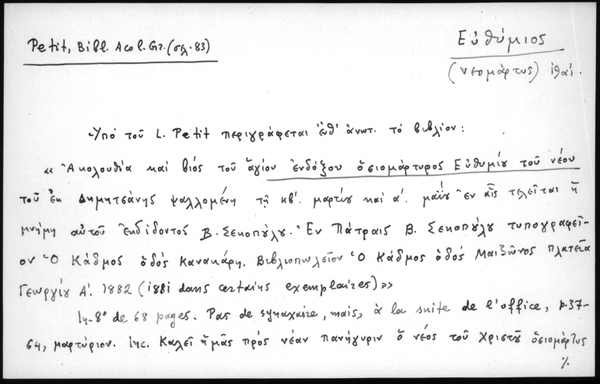 Petit, Bibl. Acol. Gr. (σελ. 83)
Εὐθύμιος
(νεομάρτυς) Ἰθαί.
Ὑπό τοῦ L. Petit περιγράφεται ἔνθ' ἀνωτ. τό βιβλίον:
« Ἀκολουθία καί βίος τοῦ ἁγίου ἐνδόξου ὁσιομάρτυρος Εὐθυμίου τοῦ νέου
τοῦ ἐκ Δημητσάνης ψαλλομένη τῇ κβ'. μαρτίου καί α'. μαΐου ἐν αἷς τελεῖται ἡ
μνήμη αὐτοῦ ἐκδίδοντος Β. Σεκοπούλου. Ἐν Πάτραις Β. Σεκοπούλου τυπογραφεῖ-
ον Ὁ Κάδμος ὁδός Κανακάρη. Βιβλιοπωλεῖον Ὁ Κάδμος ὁδός Μαιζῶνος πλατεῖα
Γεωργίου Α'. 1882 (1881 dans certains exemplaires) »
In-8° de 68 pages. Pas de synaxaire, mais, à la suite de l'office, p. 37-
64, μαρτύριον. Inc. Καλεῖ ἡμᾶς πρός νέαν πανήγυριν ὁ νέος τοῦ Χριστοῦ ὁσιομάρτυς
%.